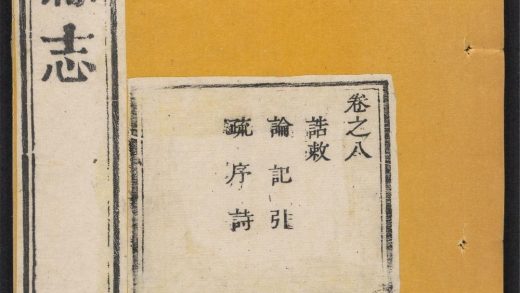 卷之八
誥敕
論記引
疏序詩
志